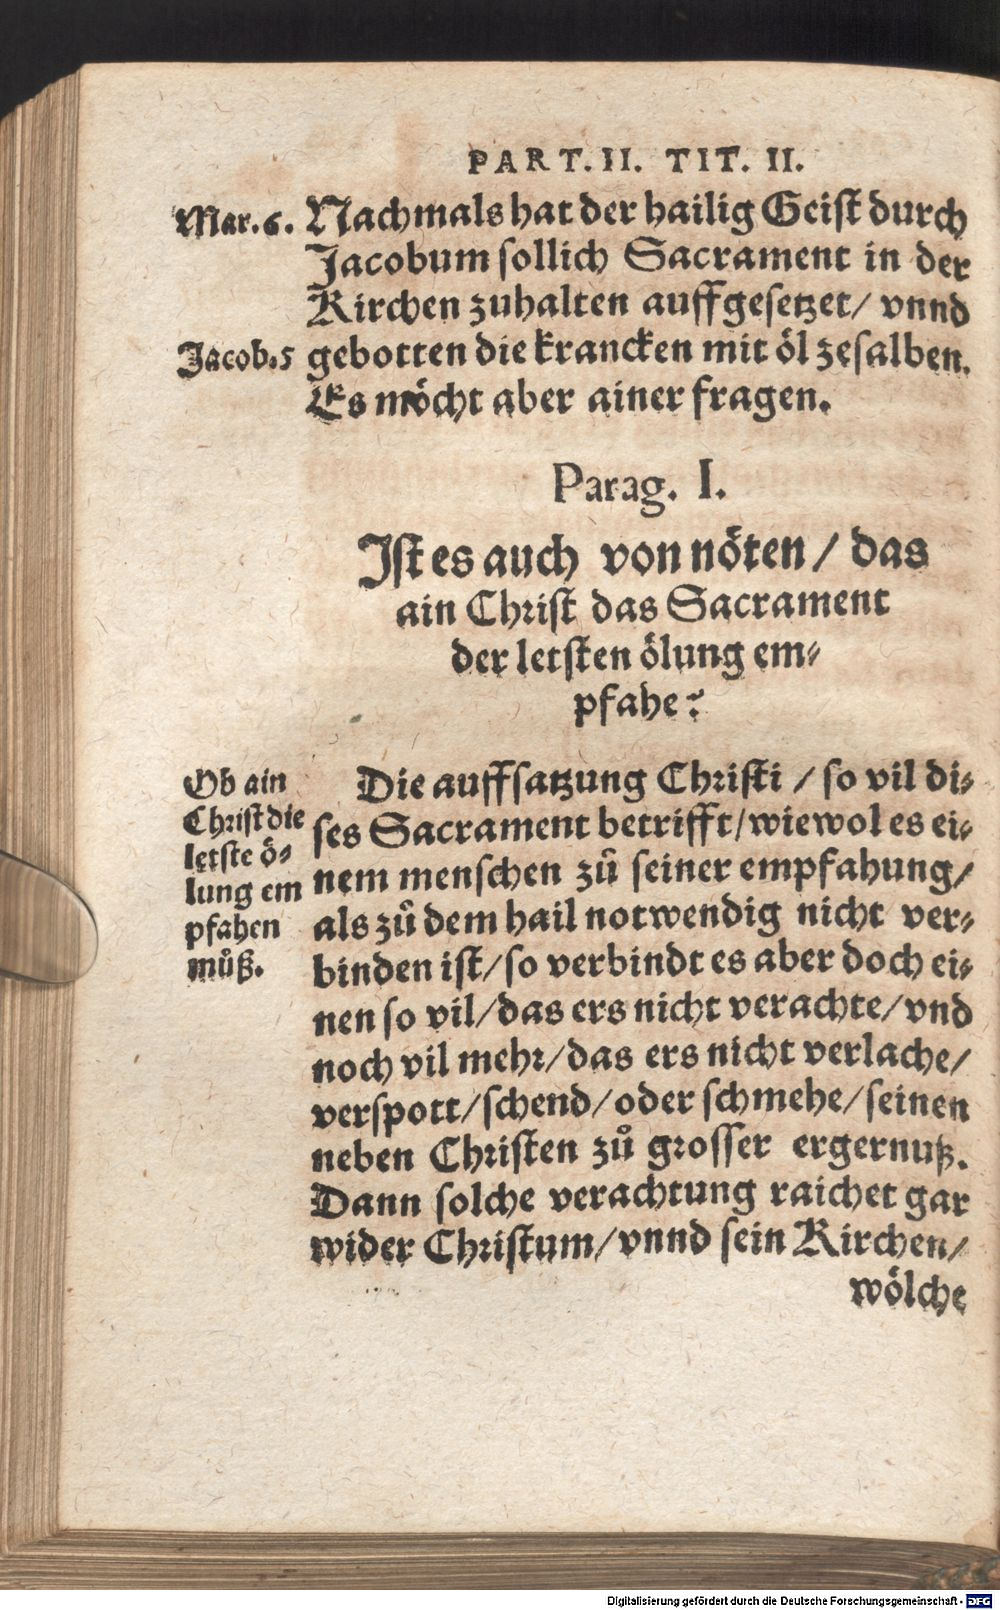 PART. II. TIT. II.
Mar. 6.
Nachmals hat der hailig Geist durch
Jacobum sollich Sacrament in der
Kirchen zuhalten auffgesetzet/ vnnd
Jacob. 5
gebotten die krancken mit öl zesalben.
Es möcht aber ainer fragen.
Parag. I.
Ist es auch von nöten / das
ain Christ das Sacrament
der letsten ölung em-
pfahe?
Ob ain
Christ die
letste ö-
lung em
pfahen
můß.
Die auffsatzung Christi / so vil di-
ses Sacrament betrifft/ wiewol es ei-
nem menschen zů seiner empfahung/
als zů dem hail notwendig nicht ver-
binden ist/ so verbindt es aber doch ei-
nen so vil/ das ers nicht verachte/ vnd
noch vil mehr/ das ers nicht verlache/
verspott/ schend/ oder schmehe/ seinen
neben Christen zů grosser ergernuß.
Dann solche verachtung raichet gar
wider Christum/ vnnd sein Kirchen/
wölche
Digitalisierung gefördert durch die Deutsche Forschungsgemeinschaft - DFG